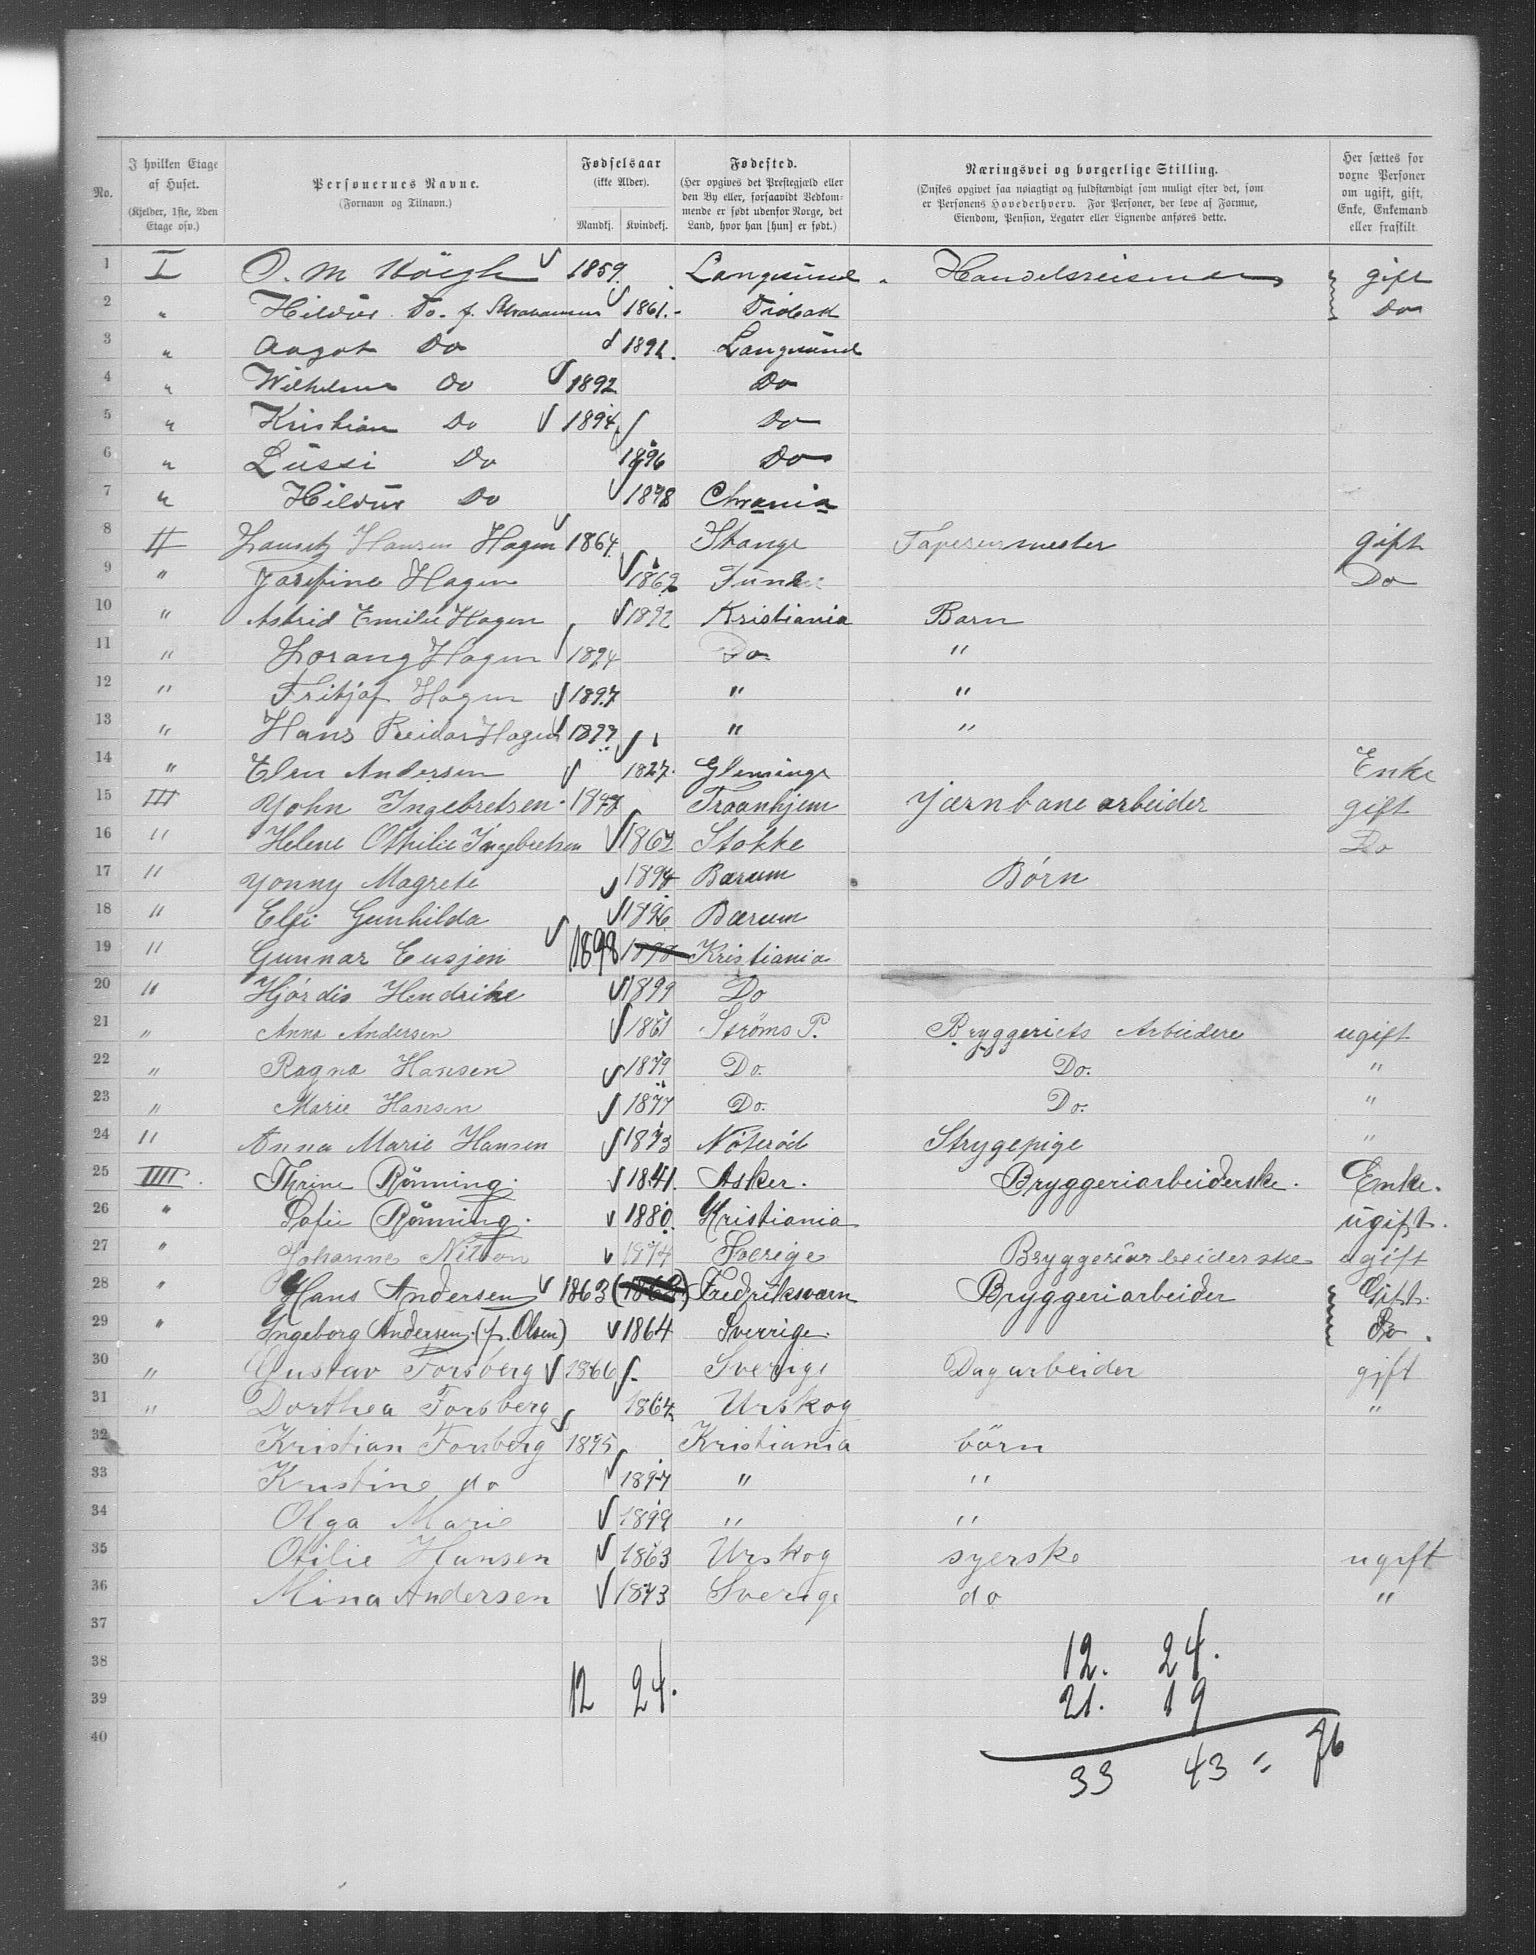 No. | I hvilken Etage af Huset. (Kjelder, 1ste, 2den Etage osv.) | Personernes Navne. (Fornavn og Tilnavn.) | Fødselsaar (ikke Alder). Mandkj. Kvindekj. | Fødested. (Her opgives det Prestegjæld eller den By eller, forsaavidt Vedkommende er født udenfor Norge, det Land, hvor han [hun] er født.) | Næringsvei og borgerlige Stilling. (Ønskes opgivet saa nøiagtigt og fuldstændigt som muligt efter det, som er Personens Hovederhverv. For Personer, der leve af Formue, Eiendom, Pension, Legater eller Lignende anføres dette. | Her sættes for voxne Personer om ugift, gift, Enke, Enkemand eller fraskilt.
1 I O. M 1859. Langesund Handelsreisende gift
2 " Hildur Do. f. 1861. Do
3 " Aagot Do Langesund
4 " Wilhelm Do 1892 Do
5 " Kristian Do 1894 Do
6 " Lussi Do 1896 Do
7 " Hildur Do 1898 Chrania
8 II Hansen Hagen 1864. Stange gift
9 " Josefine Hagen Do
10 " Astrid Emilie Hagen 1892 Kristiania Barn
11 " Lorang Hagen 1894 Do "
12 " Fritjof Hagen 1897 " "
13 " Hans Reidar Hagen " "
14 " Andersen 1827. Gleminge Enke
15 III John Ingebretsen Jærnbanearbeider gift
16 " Helene Othilie Ingebretsen Stokke Do
17 " Yonny Magrete Bærum Børn
18 " Elfi Gunhilda 1896 Bærum
19 " Gunnar Eusjen 1898 Kristiania
20 " Hjørdis Hendrike 1899 Do
21 " Anna Andersen Strøms P. Bryggeriets Arbeidere ugift
22 " Ragna Hansen 1879 Do. Do. "
23 " Marie Hansen 1877 Do. Do. "
24 " Anna Marie Hansen 1873 Nøterød Strygepige "
25 IIII. Thrine Rönning. 1841. Asker. Bryggeriarbeiderske. Enke.
26 " Sofie Rönning. 1880. Kristiania ugift.
27 " Johanne Nilson 1874 Sverige Bryggeriarbeiderske ugift
28 " Hans Andersen 1863 Fredriksværn Bryggeriarbeider Gift.
29 " Ingeborg Andersen. (f. Olsen) 1864 Sverrige. Do.
30 " Gustav Forsberg 1866 Sverige Dagarbeider gift
31 " Dorthea Forsberg 1864 Urskog "
32 Kristian Forsberg 1895 Kristiania börn
33 Kristine do 1897 " "
34 Olga Marie 1899 " "
35 Otilie Hansen 1863 Urskog syerske ugift
36 Mina Andersen 1873 Sverige do "
37
38 12. 24.
39 12 24. 21. 19
40 33 43 = 76